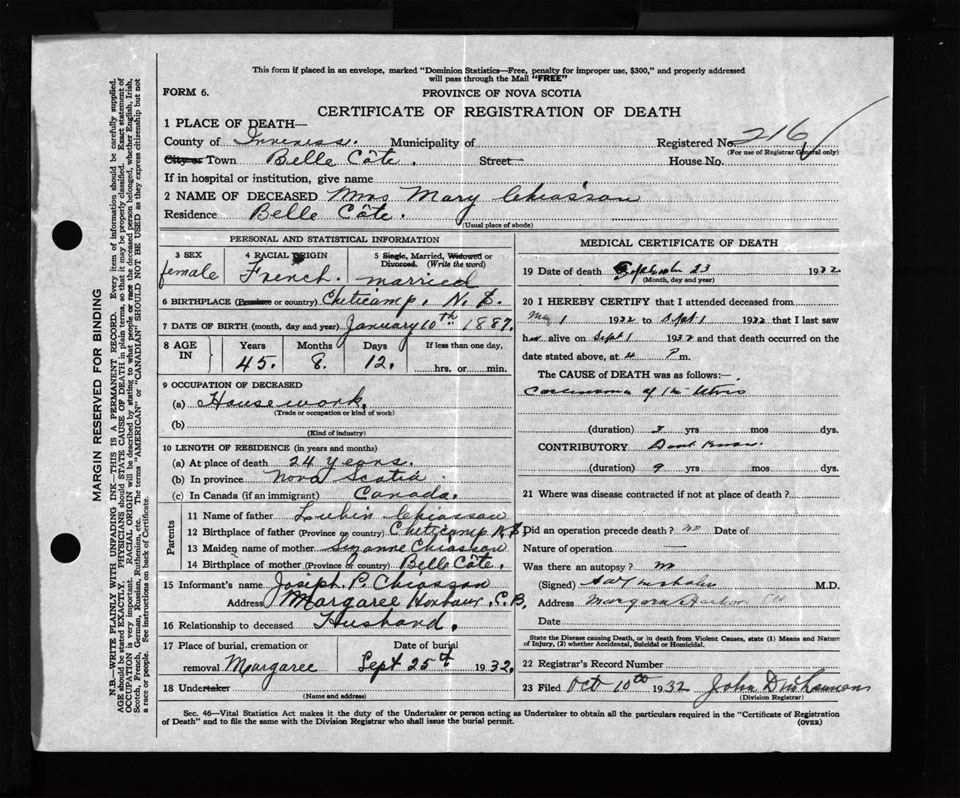 This form if placed in an envelope, marked "Dominion Statistics—Free, penalty for improper use, $300," and properly addressed
will pass through the Mail "FREE"
FORM 6.
PROVINCE OF NOVA SCOTIA
CERTIFICATE OF REGISTRATION OF DEATH
1 PLACE OF DEATH—
County of Inverness. Municipality of Registered No. 216
(For use of Registrar General only)
City or Town Belle Côte. Street House No.
If in hospital or institution, give name
2 NAME OF DECEASED Mrs Mary Chiasson
Residence Belle Côte.
(Usual place of abode)
PERSONAL AND STATISTICAL INFORMATION
3 SEX
female
4 RACIAL ORIGIN
French.
5 Single, Married, Widowed or
Divorced. (Write the word)
married
6 BIRTHPLACE (Province or country) Cheticamp, N.S.
7 DATE OF BIRTH (month, day and year) January 10th 1887.
8 AGE IN
Years Months Days If less than one day,
45. 8. 12. hrs. or min.
9 OCCUPATION OF DECEASED
(a) Housework.
(Trade or occupation or kind of work)
(b)
(Kind of industry)
10 LENGTH OF RESIDENCE (in years and months)
(a) At place of death 24 years.
(b) In province Nova Scotia
(c) In Canada (if an immigrant) Canada.
Parents
11 Name of father Lubin Chiasson
12 Birthplace of father (Province or country) Cheticamp N.S.
13 Maiden name of mother Suzanne Chiasson
14 Birthplace of mother (Province or country) Belle Côte.
15 Informant's name Joseph P. Chiasson
Address Margaree Harbour, C.B.
16 Relationship to deceased Husband.
17 Place of burial, cremation or
removal Margaree
Date of burial
Sept 25th 1932.
18 Undertaker
(Name and address)
MEDICAL CERTIFICATE OF DEATH
19 Date of death September 23 1932
(Month, day and year)
20 I HEREBY CERTIFY that I attended deceased from
May 1 1932 to Sept 1 1932 that I last saw
her alive on Sept 1 1932 and that death occurred on the
date stated above, at 4 P m.
The CAUSE of DEATH was as follows:—
Carcinoma of the Uterus
(duration) yrs mos dys.
CONTRIBUTORY Don't know.
(duration) yrs mos dys.
21 Where was disease contracted if not at place of death?
Did an operation precede death? no Date of
Nature of operation —
Was there an autopsy? no
(Signed) M.D.
Address Margaree Harbour CB
Date
State the Disease causing Death, or in death from Violent Causes, state (1) Means and Nature
of Injury, (2) whether Accidental, Suicidal or Homicidal.
22 Registrar's Record Number
23 Filed Oct 10th 1932 John
(Division Registrar)
Sec. 46—Vital Statistics Act makes it the duty of the Undertaker or person acting as Undertaker to obtain all the particulars required in the "Certificate of Registration
of Death" and to file the same with the Division Registrar who shall issue the burial permit.
(OVER)
MARGIN RESERVED FOR BINDING
N.B.—WRITE PLAINLY WITH UNFADING INK—THIS IS A PERMANENT RECORD. Every item of information should be carefully supplied.
AGE should be stated EXACTLY. PHYSICIANS should STATE CAUSE OF DEATH in plain terms, so that it may be properly classified. Exact statement of
OCCUPATION is very important. RACIAL ORIGIN will be described by stating to what people or race the deceased person belonged, whether English, Irish,
Scotch, French, German, Russian, Ruthenian, etc. The terms "AMERICAN" or "CANADIAN" SHOULD NOT BE USED as they express citizenship but not
a race or people. See instructions on back of Certificate.